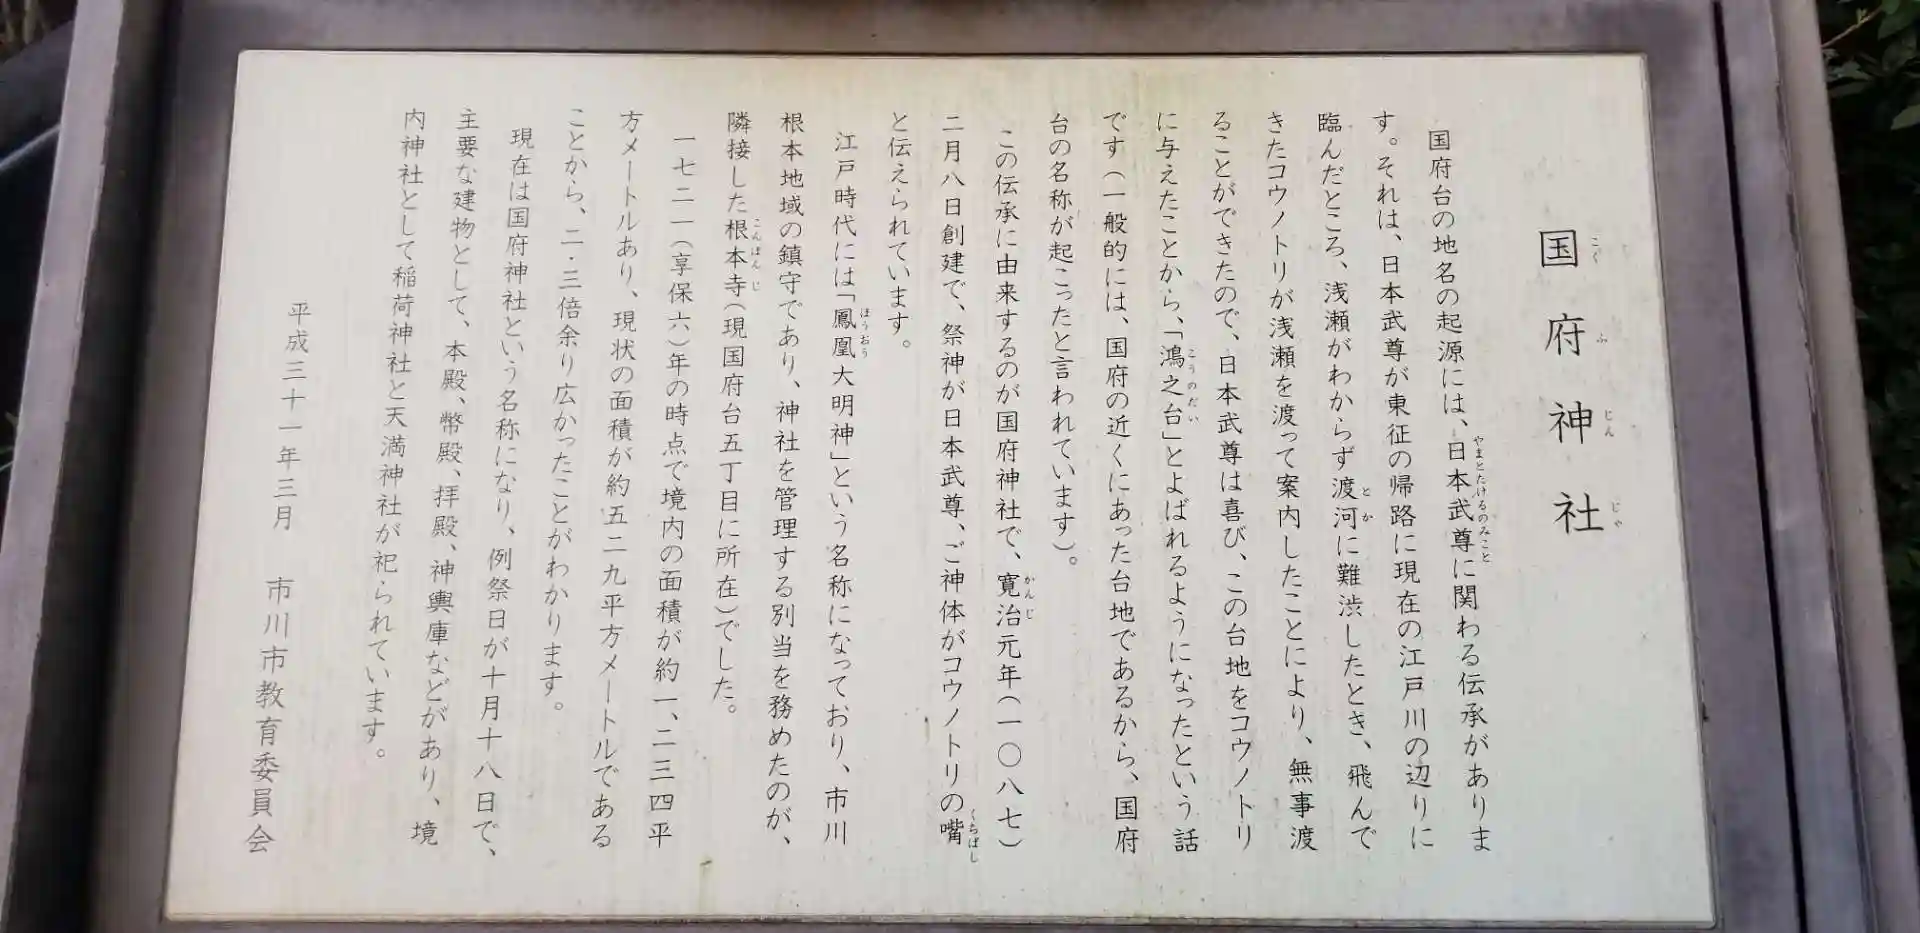 国府神社
こくふじんじゃ
国府台の地名の起源には、日本武尊に関わる伝承がありま
やまとたけるのみこと
す。それは、日本武尊が東征の帰路に現在の江戸川の辺りに
臨んだところ、浅瀬がわからず渡河に難渋したとき、飛んで
とか
きたコウノトリが浅瀬を渡って案内したことにより、無事渡
ることができたので、日本武尊は喜び、この台地をコウノトリ
に与えたことから、「鴻之台」とよばれるようになったという話
こうのだい
です(一般的には、国府の近くにあった台地であるから、国府
台の名称が起こったと言われています)。
この伝承に由来するのが国府神社で、寛治元年(一〇八七)
かんじ
二月八日創建で、祭神が日本武尊、ご神体がコウノトリの嘴
くちばし
と伝えられています。
江戸時代には「鳳凰大明神」という名称になっており、市川
ほうおう
根本地域の鎮守であり、神社を管理する別当を務めたのが、
隣接した根本寺(現国府台五丁目に所在)でした。
こんぽんじ
一七二一(享保六)年の時点で境内の面積が約一、二三四平
方メートルあり、現状の面積が約五二九平方メートルである
ことから、二・三倍余り広かったことがわかります。
現在は国府神社という名称になり、例祭日が十月十八日で、
主要な建物として、本殿、幣殿、拝殿、神輿庫などがあり、境
内神社として稲荷神社と天満神社が祀られています。
平成三十一年三月 市川市教育委員会